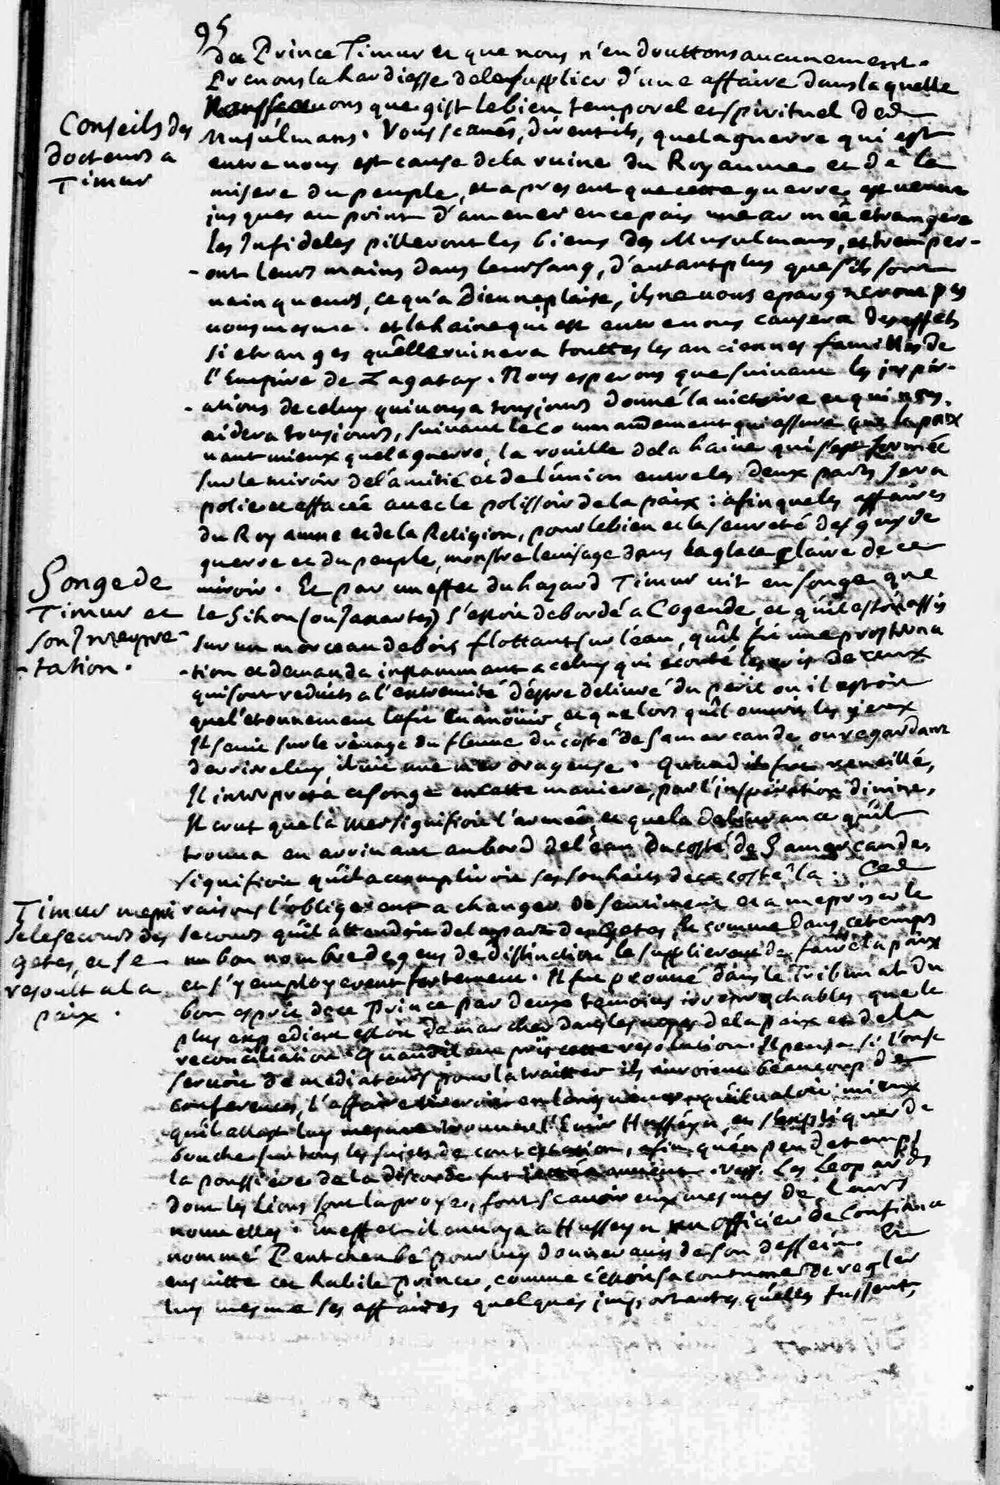 95
du Prince Timur et que nous n'en douttons aucunement.
Prenons la hardiesse de le supplier d'une affaire dans laquelle
nous que gist le bien temporel et spirituel des
Conseils des
docteurs a
Timur
Musulmans. Vous scaués, dirent ils, que la guerre qui est
entre nous est cause de la ruine du Royaume et de la
misere du peuple, et a present que cette guerre est venue
jusques au point d'amener en ce pais une armée etrangere
les Infideles pilleront les biens des Musulmans, et tremper-
-ont leurs mains dans leur sang, d'autant plus que s'ils sont
uainqueurs, ce qu'a Dieu ne plaise, ils ne nous epargneront pas
nous mesme. et la haine qui est entre nous causera des effets
si etranges qu'elle ruinera touttes les anciennes familles de
l'Empire de Zagatay. Nous esperons que suiuant les inspir-
-ations de celuy qui nous a tousjours donné la victoire et qui nous
aidera tousjours, suiuant le commandement qui assure que la paix
uaut mieux que la guerre, la rouille de la haine qui s'est formée
sur le miroir de l'amitié et de l'union entre les deux partis sera
polie et effacée auec le polissoir de la paix : afin que les affaires
du Royaume et de la Religion, pour le bien et la seureté des gens de
guerre et du peuple, monstre le uisage dans la glace claire de ce
miroir. Et par un effet du hazard Timur uit en songe que
Songe de
Timur et
son Interpre-
-tation.
le Sihon (ou Jaxartes) s'estoit debordé a Cogende et qu'il estoit assis
sur un morceau de bois flottant sur l'eau, qu'il fit une prosterna
-tion et demanda instamment a celuy qui ecoute les cris de ceux
qui sont reduits a l'extremité d'estre deliuré du peril ou il estoit
que l'etonnement le fit euanouir, et que lors qu'il ouurit les yeux
Il se uit sur le riuage du fleuue du costé de Samarcande, ou regardant
derriere luy, il uit une mer orageuse. Quand il fut reueillé,
Il interpreta ce songe en cette maniere, par l'inspiration diuine,
Il crut que la mer signifioit l'armée et que la deliurance qu'il
trouua en arriuant au bord de l'eau du costé de Samarcandes
signifioit qu'il accompliroit ses souhaits de ce costé la : Ces
Timur mepri
se le secours des
getes, et se
resoult a la
paix.
raisons l'obligerent a changer de sentiment et a mepriser le
secours qu'il attendoit de la part des Getes, et comme dans ce temps
un bon nombre de gens de distinction le supplierent de faire la paix
et s'y employerent fortement. Il fut prouué dans le Tribunal du
bon esprit de ce Prince par deux temoins irreprochables que le
plus expedient estoit de marcher dans les de la paix et de la
reconciliation. Quand il eut pris cette resolution. Il pensa si l'on se
seruoit de mediateurs pour la traitter ils auroient beaucoup de
conferences, l'affaire et qu'il ualoit mieux
qu'il allast luy mesme trouuer l'Emir Hussein, et s'expliquer de
bouche sur tous les sujets de contestation, afin qu'en peu de temps
la poussiere de la discorde fut vers. Les Leopards
dont les Lions sont la proye, font scauoir eux mesmes de leurs
nouuelles. En effet il enuoya a Husseyn un officier de confiance
nommé pour luy donner auis de son dessein. Et
ensuitte cet habile prince, comme c'estoit sa coutume de regler
luy mesme ses affaires quelques importantes qu'elles fussent,